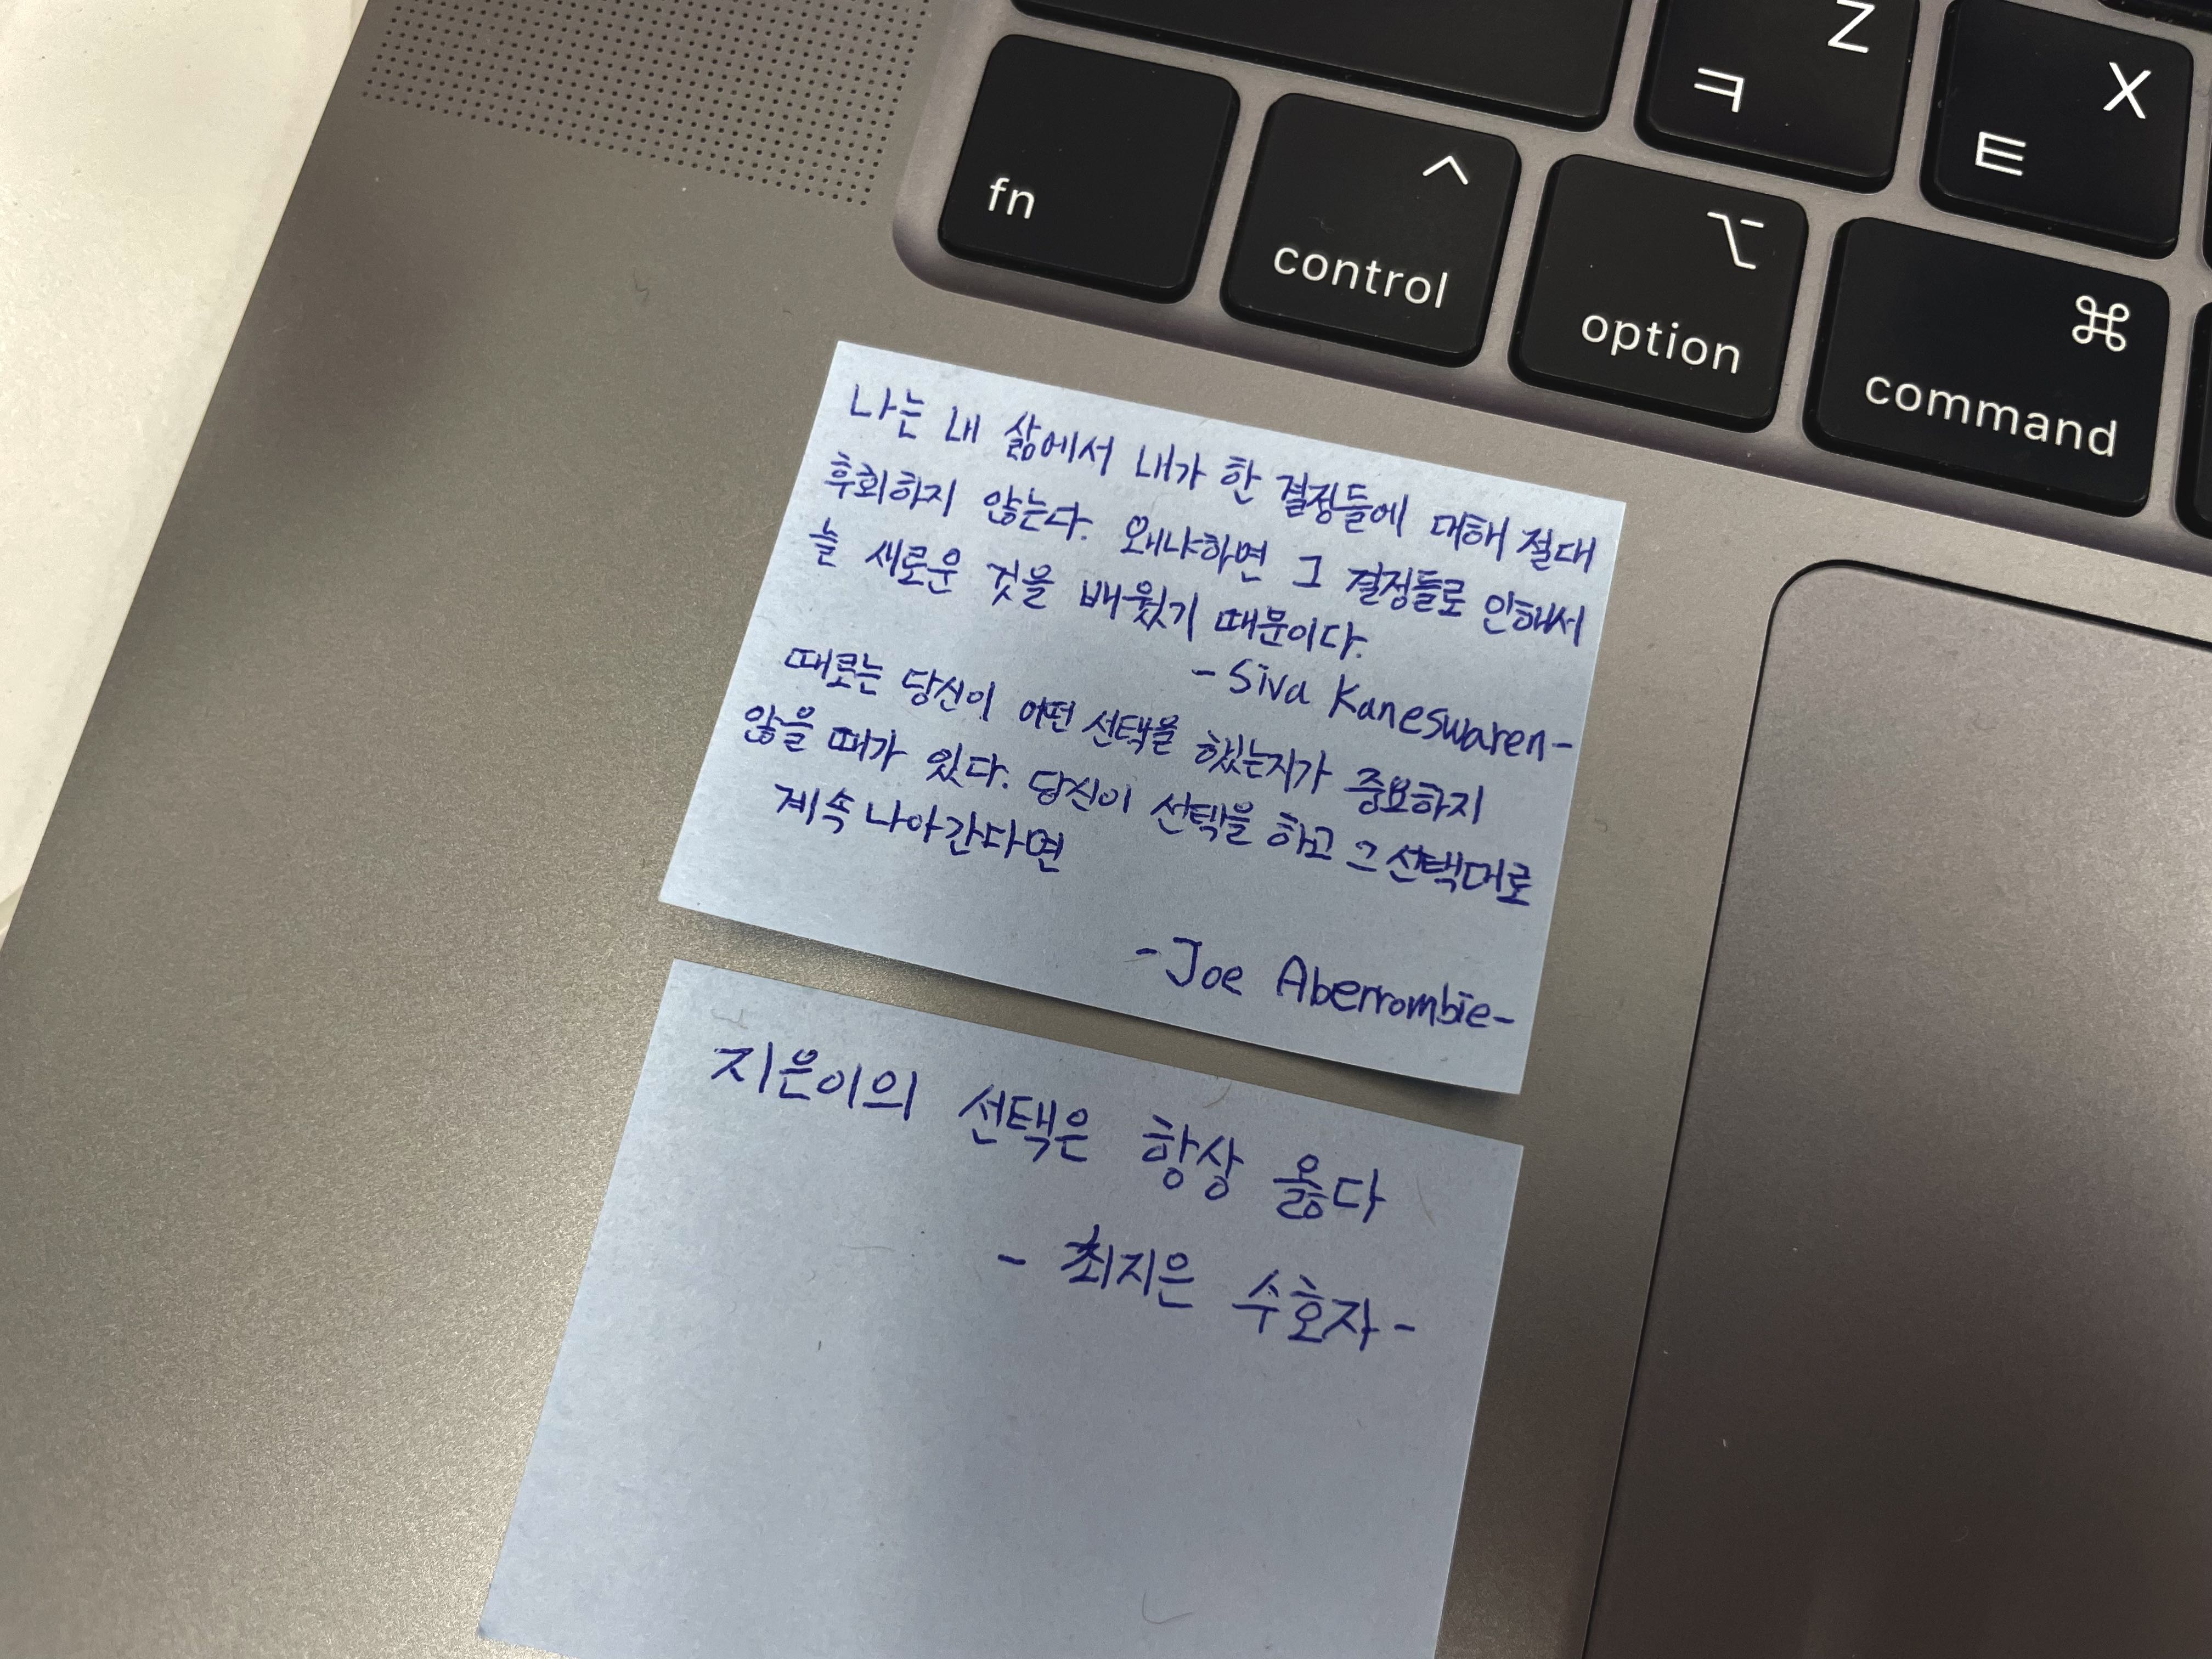 Z
ㅋ
X
ㅌ
fn
^
control
⌥
option
⌘
command
나는 내 삶에서 내가 한 결정들에 대해 절대
후회하지 않는다. 왜냐하면 그 결정들로 인해서
늘 새로운 것을 배웠기 때문이다.
-Siva Kaneswaren-
때로는 당신이 어떤 선택을 했는지가 중요하지
않을 때가 있다. 당신이 선택을 하고 그 선택대로
계속 나아간다면
-Joe Aberrombie-
지은이의 선택은 항상 옳다
- 최지은 수호자-